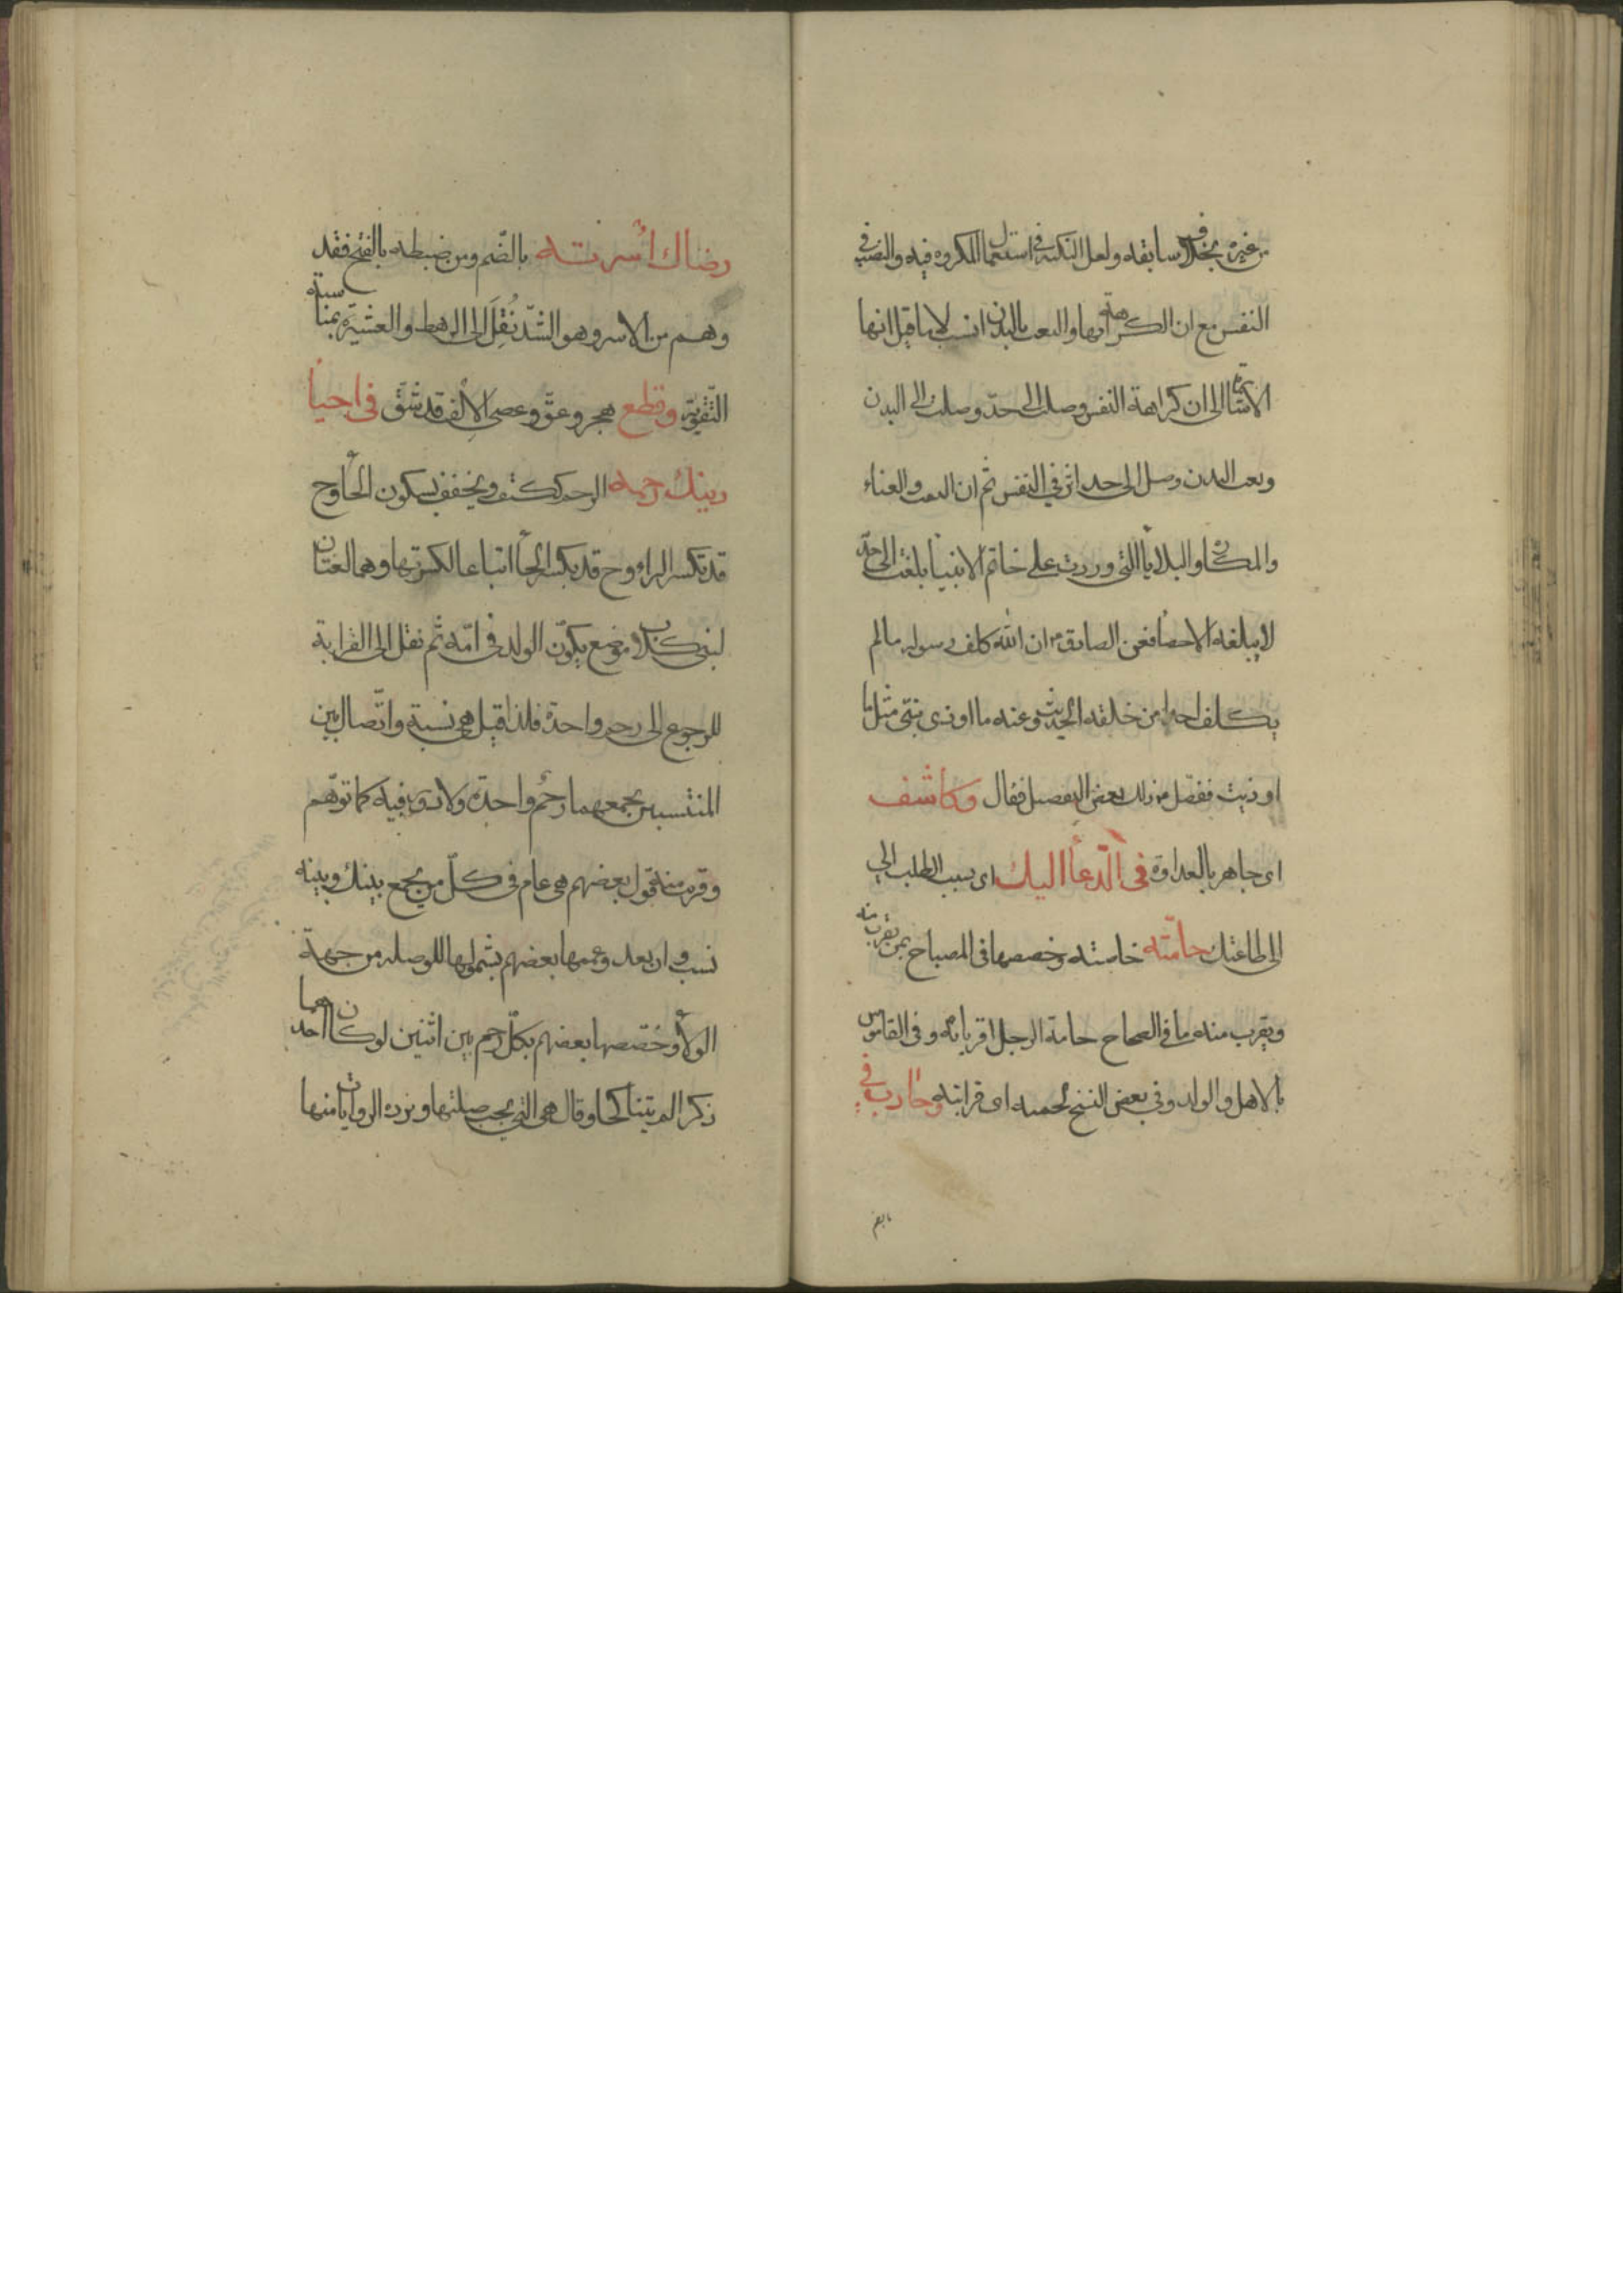 من غيره بخلاف سابقه ولعل النكتة في استعمال المكروه فيه والنصب في
النفس مع ان الكراهة بها والتعب بالبدن انسب لا ما قيل انها
الاشارة الى ان كراهة النفس وصلت الى حدّ وصلت الى البدن
وتعب البدن وصل الى حد اثر في النفس ثم ان التعب والعناء
والمكاره والبلايا التى وردت على خاتم الانبيا بلغت الى حدّ
لا يبلغه الاحصا فعن الصادق ان الله كلف رسوله ما لم
يكلف احدا من خلقه الحديث وعنه ما اوذى نبىّ مثل ما
اوذيت ففصّل من ذلك بعض التفصيل فقال وكاشف
اى جاهر بالعداوة فى الدّعاء اليك اى بسبب الطلب الى
الى طاعتك حامّته خاصته وخصصها فى المصباح بمن يقرب منه
ويقرب منه ما فى الصحاح حامة الرجل اقرباؤه وفى القاموس
بالاهل والولد وفى بعض النسخ لحمته اى قرابته وحارب فى
رضاك اُسرته بالضّم ومن ضبطه بالفتح فقد
وهم من الاسر وهو الشدّ نُقِلَ الى الرهط والعشيرة بمناسبة
التقوية وقطع هجر وعقّ وعصى الالف قد شقّ فى احياء
دينك رحمه الرحم ككتف ويخفف بسكون الحاء وح
قد تكسر الراء وح قد يكسر الحاء اتباعا لكسرتها وهما لغتان
لبنى كلاب موضع يكوّن الولد فى امّه ثم نقل الى القرابة
للرجوع الى رحم واحدة فلذا قيل هى نسبة واتّصال بين
المنتسبين يجمعهما رحُم واحدة ولا دور فيه كما توهّم
وقريب منه قول بعضهم هى عام فى كلّ من يجمع بينك وبينه
نسب وان بعد وعممها بعضهم بشمولها للوصلة من جهة
الولاء وخصّصها بعضهم بكلّ رحم بين اثنين لو كان احدهما
ذكرا لم يتناكحا وقال هى التى يجب صلتها ويرده الروايات منها